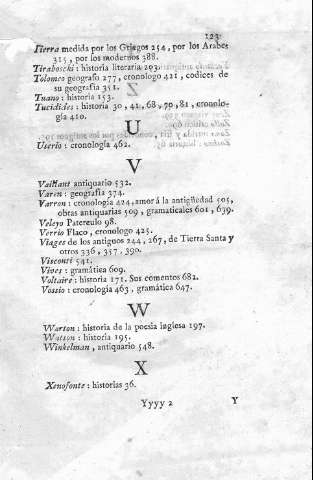 123
Tierra medida por los Griegos 254, por los Arabes
315, por los modernos 388.
Tiraboschi: historia literaria 203.
Tolomeo geografo 277, cronologo 421, codices de
su geografia 351.
Tuano: historia 153.
Tucidides: historia 30, 41, 68, 70, 81, cronolo-
gia 410.
U
Userio: cronología 462.
V
Vaillant antiquario 532.
Varen: geografia 374.
Varron: cronologia 424, amor á la antigüedad 505,
obras antiquarias 509, gramaticales 601, 639.
Veleyo Patereulo 98.
Verrio Flaco, cronologo 425.
Viages de los antiguos 244, 267, de Tierra Santa y
otros 336, 357, 390.
Visconti 541.
Vives: gramática 609.
Voltaire: historia 171. Sus comentos 682.
Vossio: cronologia 463, gramática 647.
W
Warton: historia de la poesia inglesa 197.
Watson: historia 195.
Winkelman, antiquario 548.
X
Xenofonte: historias 36.
Yyyy 2 Y